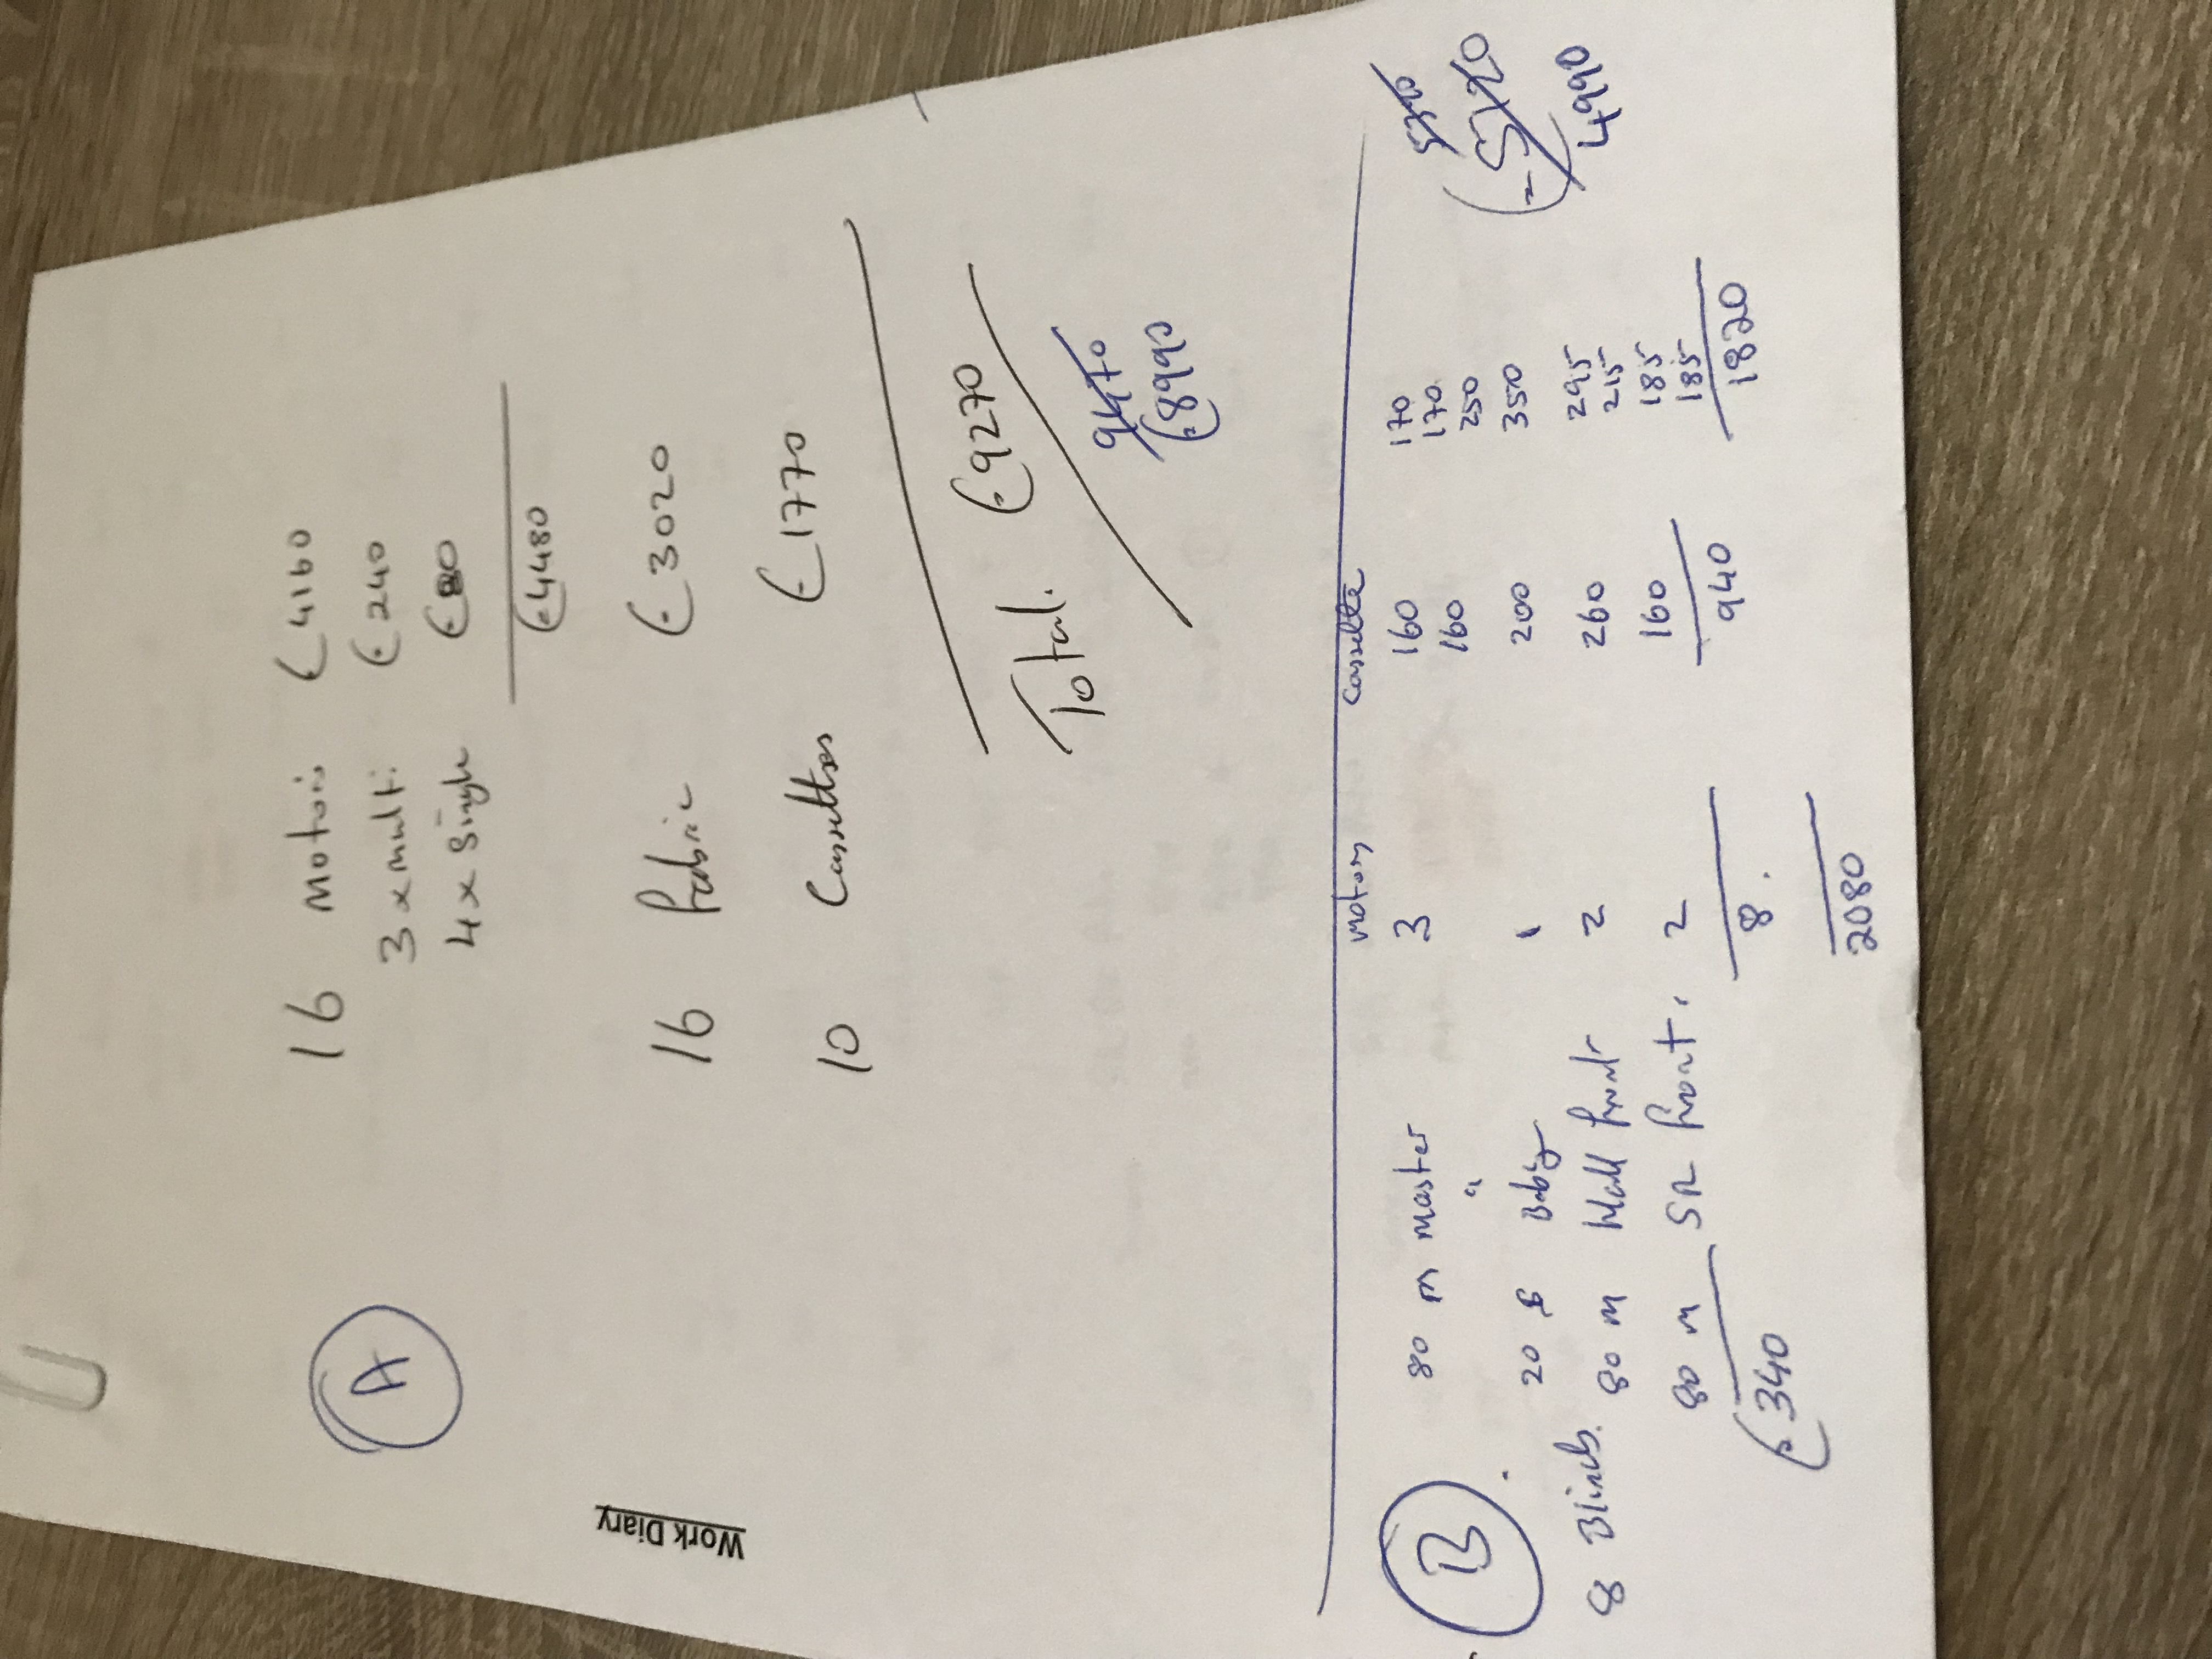 Work Diary
A
16 Motors €4160
3 x multi €240
4 x Single €80
€4480
16 Fabric €3020
10 Cassettes €1770
Total. €9270
9470
€8990
B
8 Blinds.
motors Cassette
80 m master 3 160 170
" 160 170
250
20 S Baby 1 200 350
80 m Hall front 2 260 295
215
80 m SR front. 2 160 185
185
€340 8. 940 1820
2080
€5120
4990